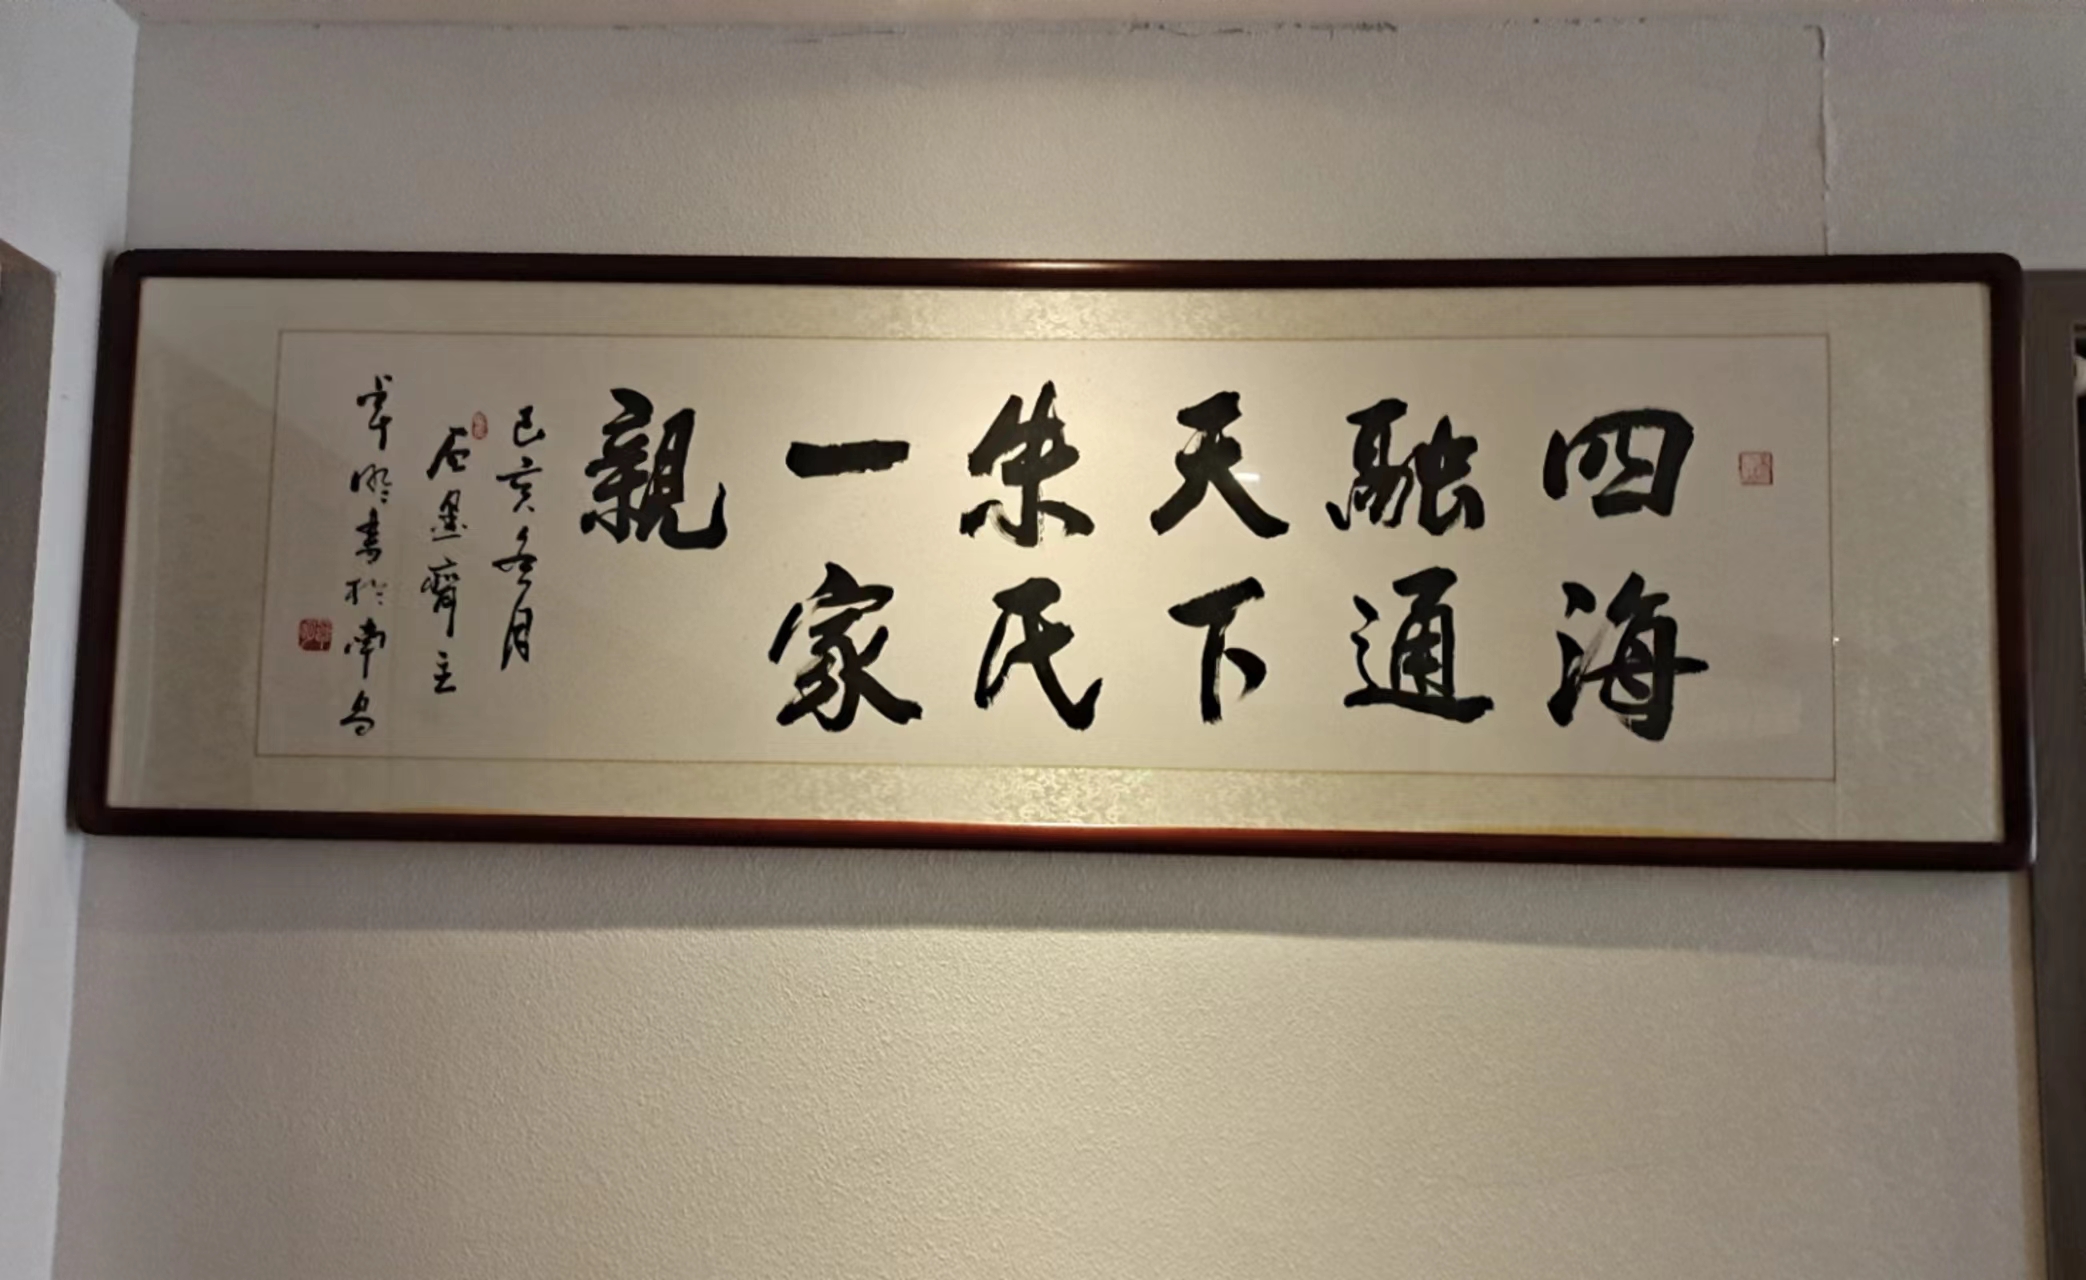 四海
融通
天下
朱氏
一家
親
己亥冬月
石墨齋主
軍書於南昌